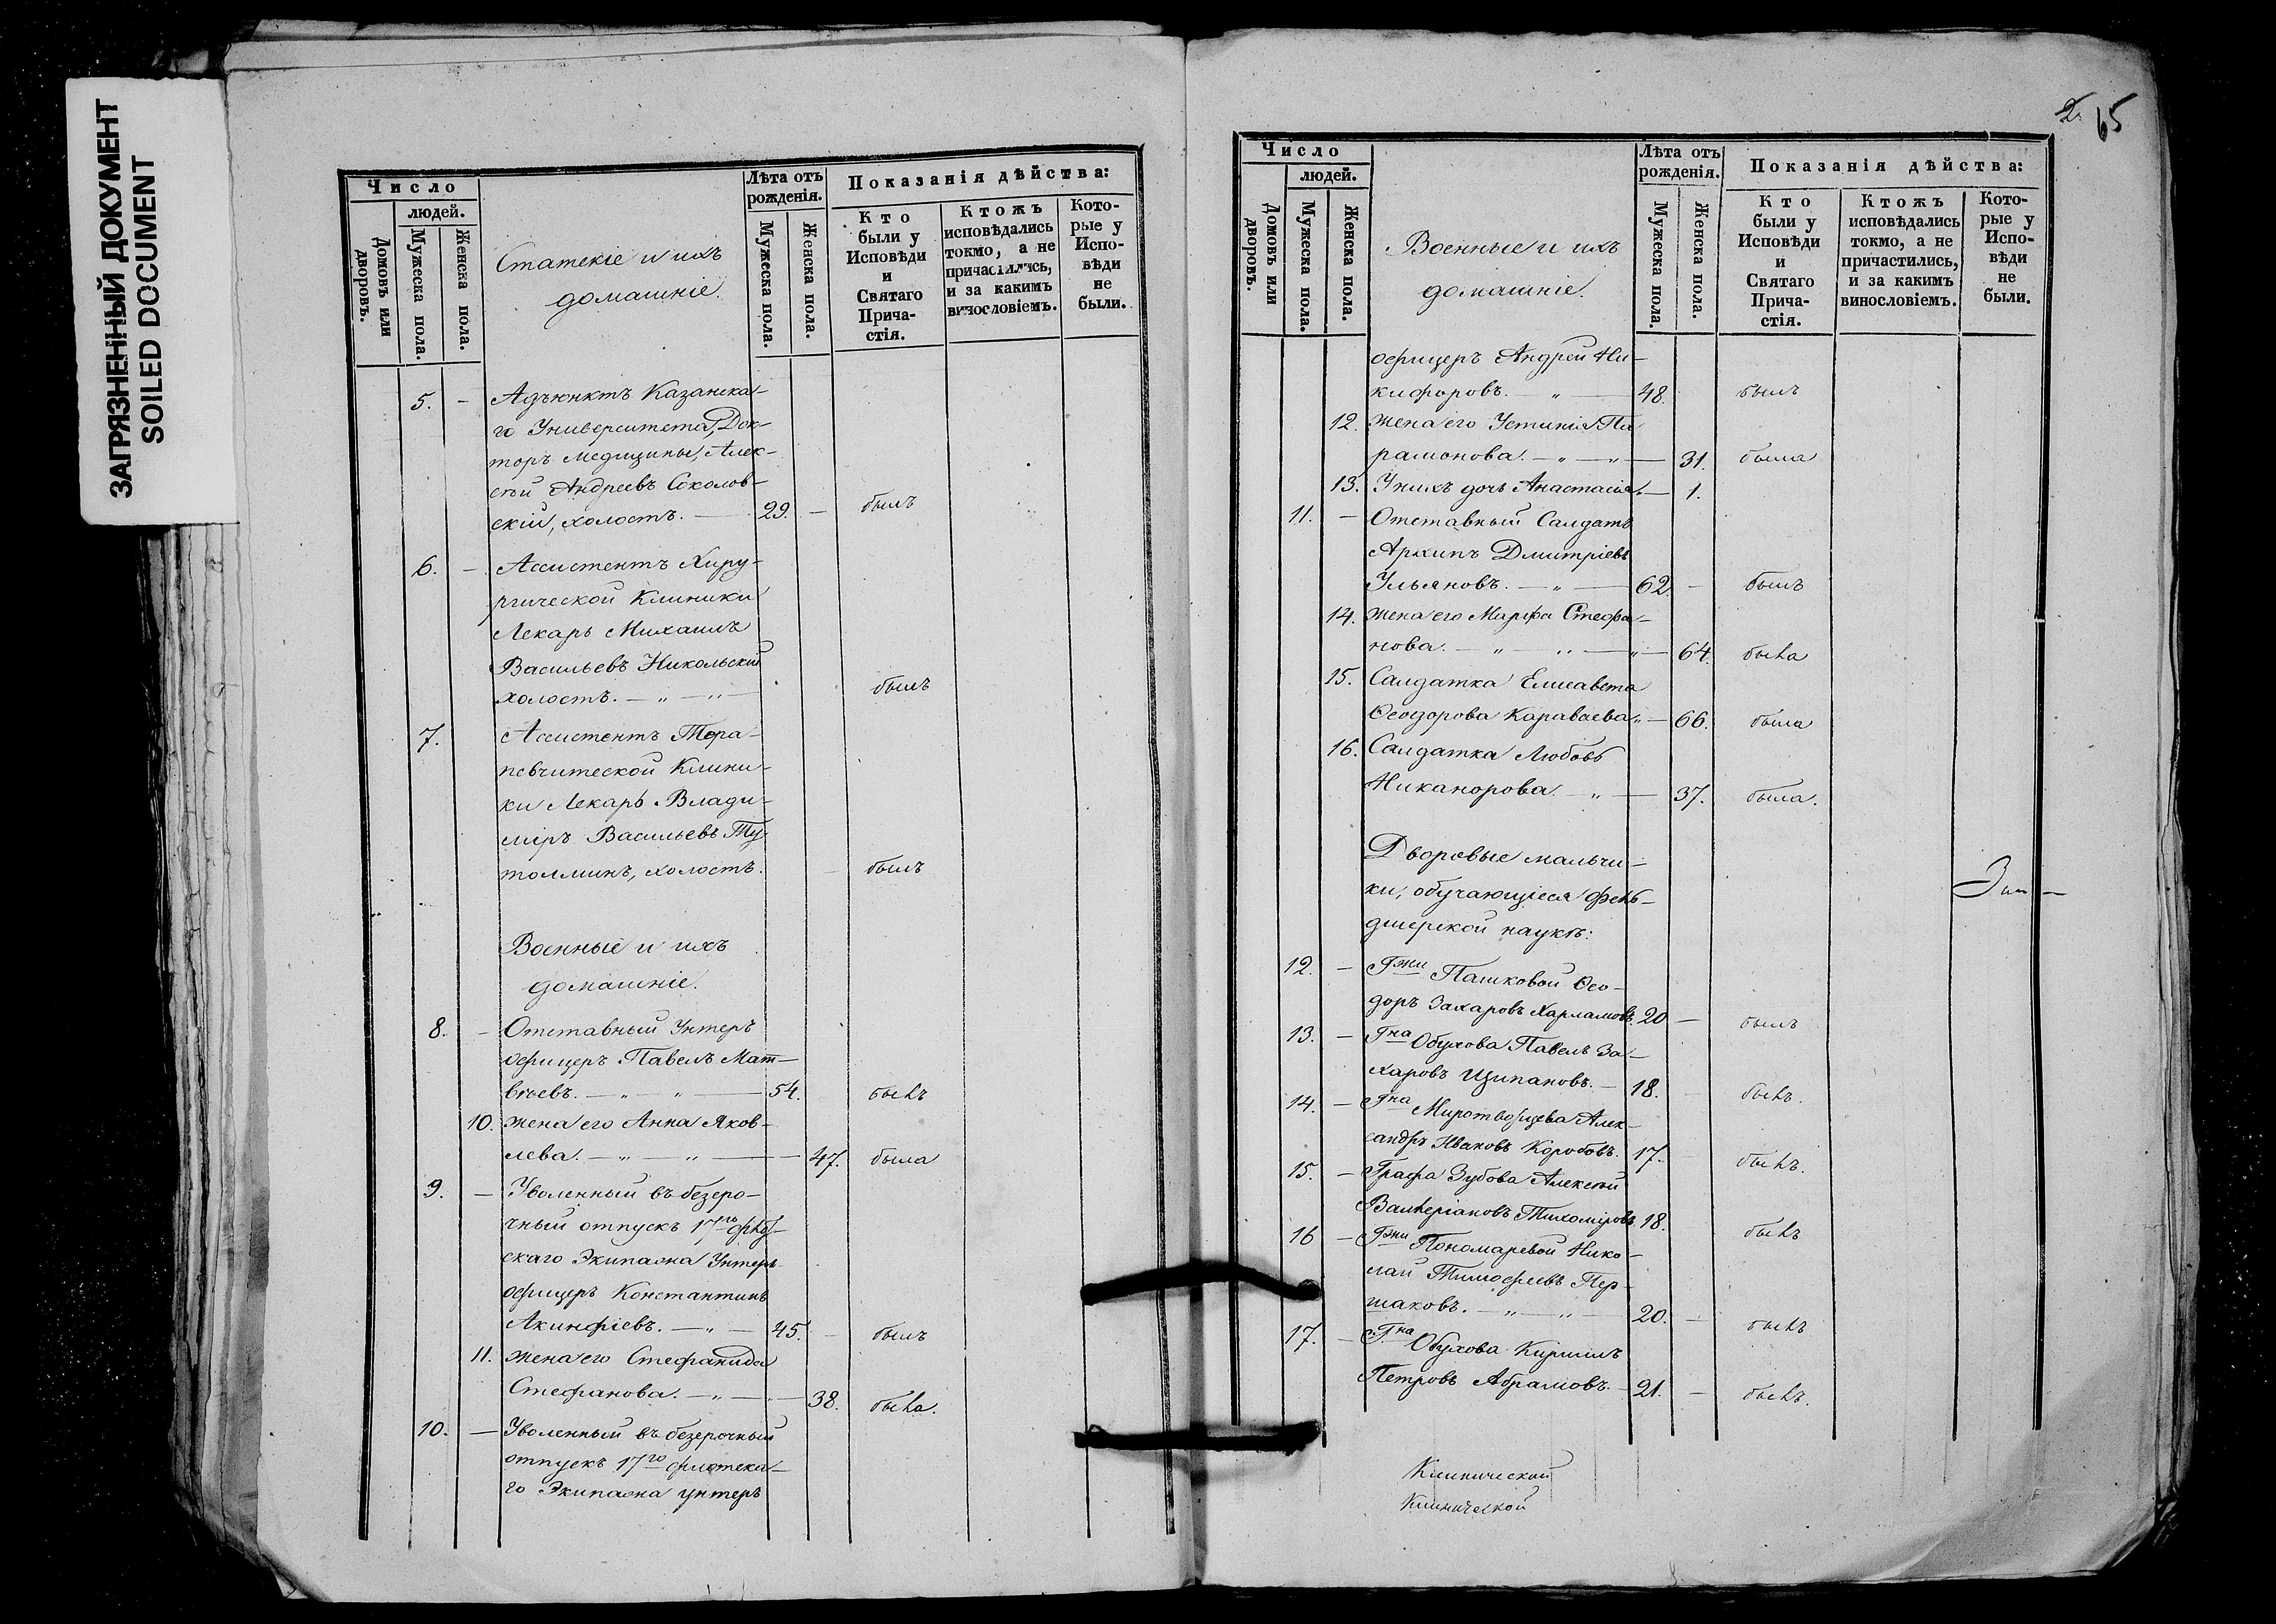 ЗАГРЯЗНЕННЫЙ ДОКУМЕНТ
SOILED DOCUMENT
Число
людей.
Домовъ или дворовъ.
Мужеска пола.
Женска пола.
Статскіе и ихъ
домашніе.
Лѣта отъ
рожденія.
Мужеска пола.
Женска пола.
Показанія дѣйства:
Кто
были у
Исповѣди
и
Святаго
Прича-
стія.
Ктожъ
исповѣдались
токмо, а не
причастились,
и за какимъ
винословіемъ.
Кото-
рые у
Испо-
вѣди
не
были.
5. – Адъюнктъ Казанска-
го Университета, Док-
торъ Медицины, Алек-
сѣй Андреевъ Соколов-
скій, холостъ. — 29. – былъ
6. – Ассистентъ Хиру-
ргической Клиники
Лекарь Михаилъ
Васильевъ Никольскій
холостъ. — „ — „ — былъ
7. Ассистентъ Тера-
певтической Клини-
ки Лекарь Влади-
міръ Васильевъ Ту-
толминъ, холостъ. – былъ
Военные и ихъ
домашніе.
8. – Отставный Унтеръ
офицеръ Павелъ Мат-
вѣевъ. — „ — „ — 54. былъ
10. Жена его Анна Яков-
лева. — „ — „ — 47. была
9. – Уволенный въ безсро-
чный отпускъ 17го флот-
скаго Экипажа Унтеръ
офицеръ Константинъ
Акинфіевъ. — „ — 45. – былъ
11. Жена его Стефанида
Стефанова. — „ — 38. была.
10. – Уволенный въ безсрочный
отпускъ 17го флотска-
го Экипажа унтеръ
2. 65
Число
людей.
Домовъ или дворовъ.
Мужеска пола.
Женска пола.
Военные и ихъ
домашніе.
Лѣта отъ
рожденія.
Мужеска пола.
Женска пола.
Показанія дѣйства:
Кто
были у
Исповѣди
и
Святаго
Прича-
стія.
Ктожъ
исповѣдались
токмо, а не
причастились,
и за какимъ
винословіемъ.
Кото-
рые у
Испо-
вѣди
не
были.
офицеръ Андрей Ни-
кифоровъ. — „ — 48. былъ
12. Жена его Устинія Па-
рамонова. — „ — „ — 31. была
13. У нихъ дочь Анастасія. — 1.
11. – Отставный Салдатъ
Архипъ Дмитріевъ
Ульяновъ. — „ — 62. – былъ
14. Жена его Марфа Стефа-
нова. — „ — „ — „ — 64. была
15. Салдатка Елисавета
Ѳеодорова Караваева „ — 66. была
16. Салдатка Любовь
Никанорова. — „ — 37. была.
Дворовые мальчи-
ки, обучающіеся фель-
дшерской наукѣ:
12. – Гжи Пашковой Ѳео-
доръ Захаровъ Харламовъ. 20 – былъ
13. – Гна Обухова Павелъ За-
харовъ Щипановъ. – 18. – былъ.
14. – Гна Миротворцева Алек-
сандръ Ивановъ Коробовъ. 17. – былъ.
15. – Графа Зубова Алексѣй
Валеріановъ Тихоміровъ 18. былъ
16 – Гжи Пономаревой Нико-
лай Тимофеевъ Пер-
шаковъ. — „ — „ — 20. – былъ
17. – Гна Обухова Кириллъ
Петровъ Абрамовъ. – 21. – былъ.
Клинической
Клинической